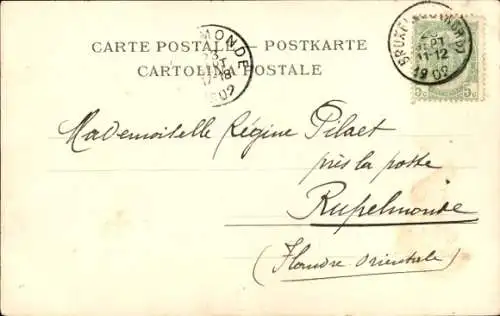 CARTE POSTALE — POSTKARTE
CARTOLINA POSTALE
MONDE
1902
BRUXELLES
11-12
1902
5c 5c
Mademoiselle Régine Pilaet
près la poste
Rupelmonde
(Flandre Orientale)